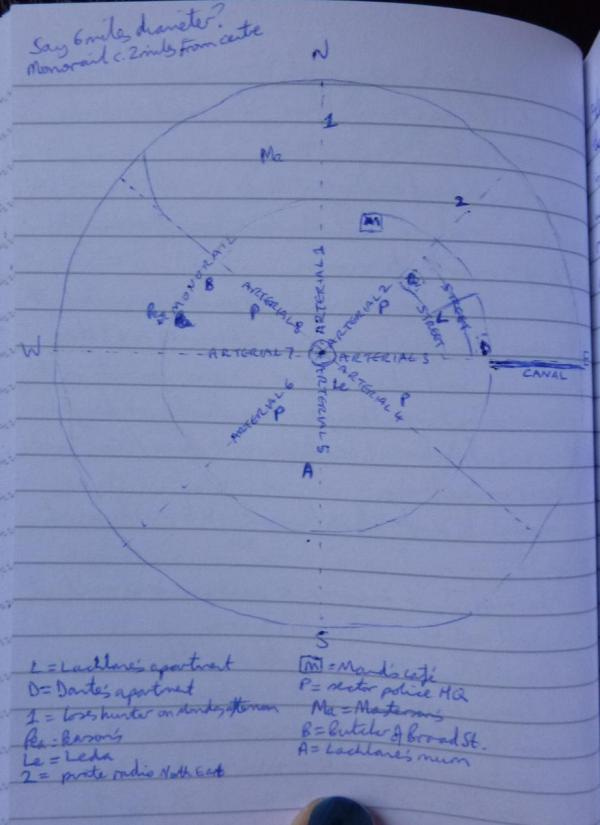 Say 6 miles diameter?
Monorail c. 2 miles from centre
N
1
Ma
2
m
MONORAIL
B
ARTERIAL 1
ARTERIAL 8
P
ARTERIAL 2
P
STREET
STREET
L
W
ARTERIAL 7
ARTERIAL 3
E
CANAL
Le
ARTERIAL 4
P
ARTERIAL 5
ARTERIAL 6
P
A
S
L = Lachlan's apartment
D = Dante's apartment
1 = loses hunter on
= 
Le = Leda
2 = pirate radio North East
m = Mand's café
P = sector police HQ
Ma = Masterson's
B = Butcher of Broad St.
A = Lachlan's mum